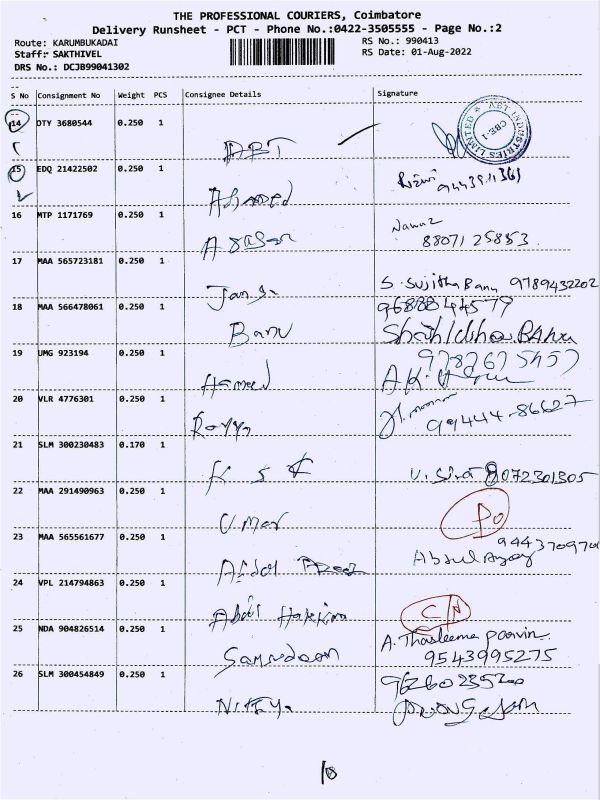 THE PROFESSIONAL COURIERS, Coimbatore
Delivery Runsheet - PCT - Phone No.:0422-3505555 - Page No.:2
Route: KARUMBUKADAI RS No.: 990413
Staff: SAKTHIVEL RS Date: 01-Aug-2022
DRS No.: DCJB99041302
S No Consignment No Weight PCS Consignee Details Signature
14 DTY 3680544 0.250 1 ABT INDUSTRIES LIMITED CBE-1
15 EDQ 21422502 0.250 1 Ahamed
16 MTP 1171769 0.250 1 Nawaz
88071 25853
17 MAA 565723181 0.250 1 S. Sujitha Banu 9789432202
18 MAA 566478061 0.250 1 Banu 9688844579
19 UMG 923194 0.250 1 Hameed
20 VLR 4776301 0.250 1 99444-86627
21 SLM 300230483 0.170 1 K S K V. Siva 8072301305
22 MAA 291490963 0.250 1 Umar DO
23 MAA 565561677 0.250 1 Abdul 9443709701
24 VPL 214794863 0.250 1 Abdul Hakkim C/N
25 NDA 904826514 0.250 1 A. Thasleema Parvin
9543995275
26 SLM 300454849 0.250 1 Nithya